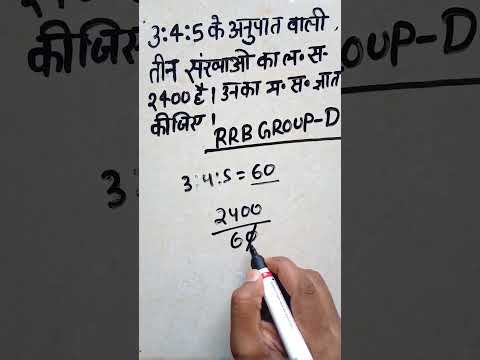 3:4:5 के अनुपात वाली
तीन संख्याओ का ल॰ स॰
2400 है। उनका म॰ स॰ ज्ञात
कीजिए।
RRB GROUP-D
3:4:5 = 60
2400
60